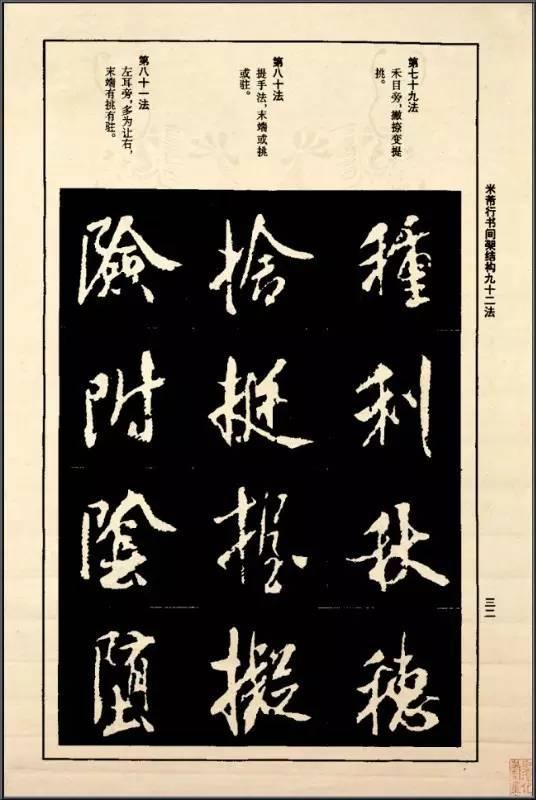 米芾行书间架结构九十二法
三二
第七十九法
禾目旁，撇捺变提
挑。
種利秋穗
第八十法
提手法，末端或挑
或驻。
捨挺握擬
第八十一法
左耳旁，多为让右，
末端有挑有驻。
險附陰